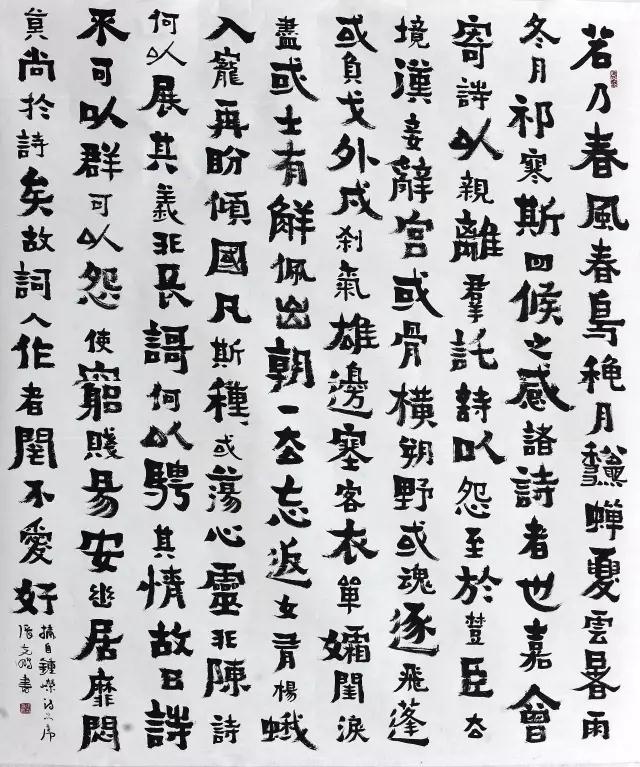 若乃春風春鳥穐月龝蟬夏雲暑雨
冬月祁寒斯四候之感諸詩者也嘉會
寄詩以親離羣託詩以怨至於楚臣去
境漢妾辭宮或骨橫朔野或魂逐飛蓬
或負戈外戍殺氣雄邊塞客衣單孀閨淚
盡或士有解佩出朝一去忘返女有揚蛾
入寵再盼傾國凡斯種種或蕩心靈非陳詩
何以展其義非長謌何以騁其情故曰詩
可以群可以怨使窮賤易安幽居靡悶
莫尚於詩矣故詞人作者罔不愛好
摘自鍾嶸詩品序
書